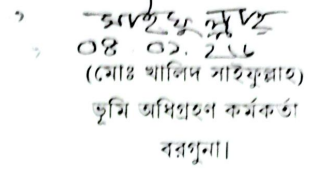 ০৪.০১.২১৬
(মোঃ খালিদ সাইফুল্লাহ)
ভূমি অধিগ্রহণ কর্মকর্তা
বরগুনা।